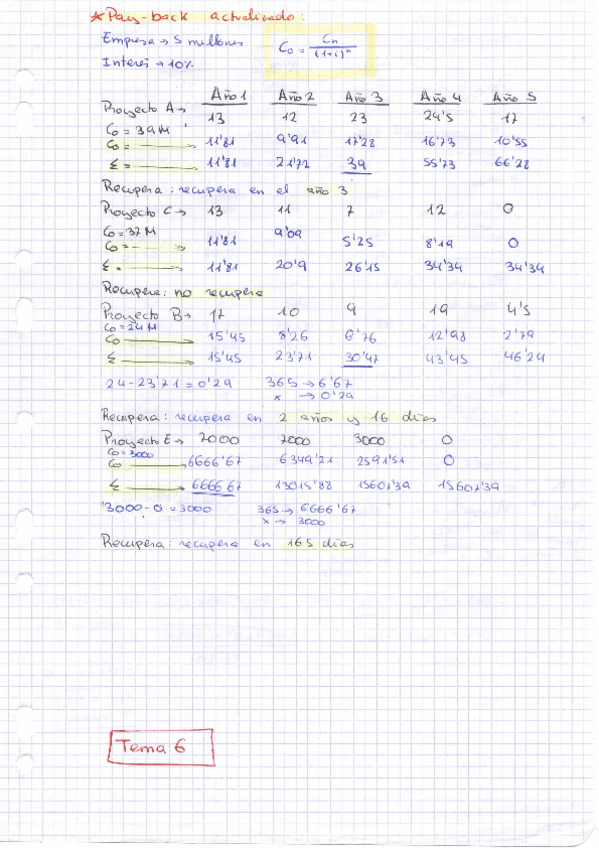 * Pay-back actualizado:
Empresa → 5 millones
Interés → 10%
Co = Cn / (1+i)^n
Año 1 Año 2 Año 3 Año 4 Año 5
Proyecto A → 13 12 23 24'5 17
Co = 39 M
Co = → 11'81 9'91 17'28 16'73 10'55
Σ = → 11'81 21'72 39 55'73 66'28
Recupera: recupera en el año 3
Proyecto C → 13 11 7 12 0
Co = 37 M
Co = → 11'81 9'09 5'25 8'19 0
Σ = → 11'81 20'9 26'15 34'34 34'34
Recupera: no recupera
Proyecto B → 17 10 9 19 4'5
Co = 24 M
Co → 15'45 8'26 6'76 12'98 2'79
Σ → 15'45 23'71 30'47 43'45 46'24
24 - 23'71 = 0'29 365 → 6'67
x → 0'29
Recupera: recupera en 2 años y 16 días
Proyecto E → 7000 7000 3000 0
Co = 3000
Co → 6666'67 6349'21 2591'51 0
Σ → 6666'67 13015'88 15607'39 15607'39
3000 - 0 = 3000 365 → 6666'67
x → 3000
Recupera: recupera en 165 días
Tema 6